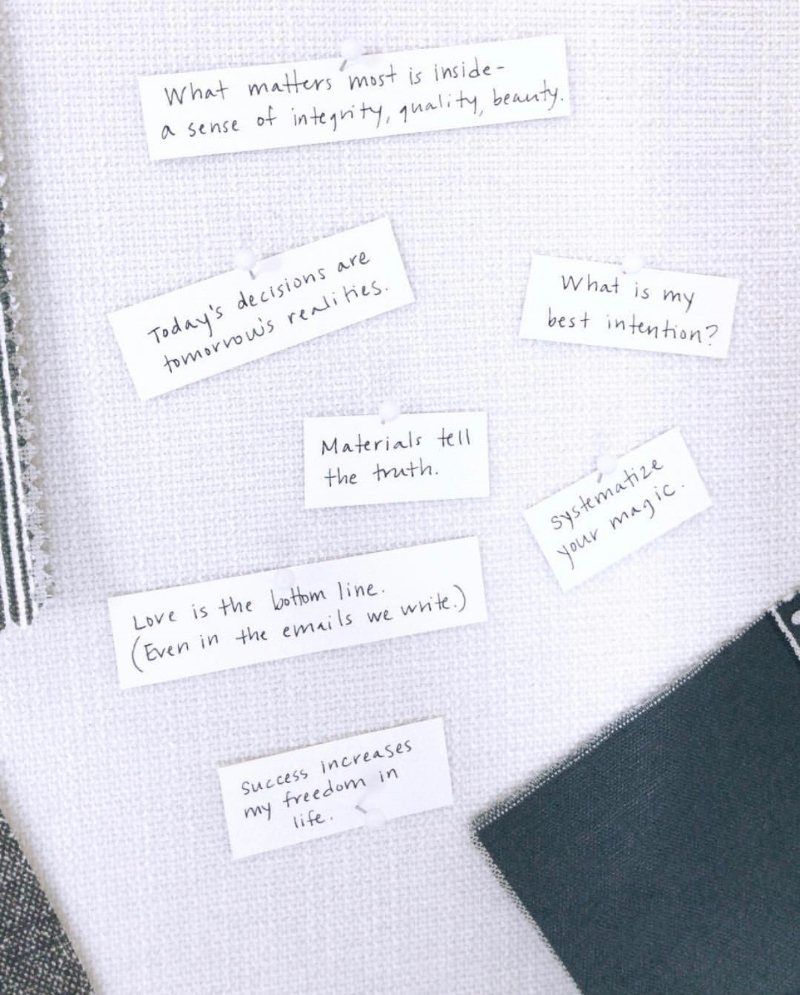 What matters most is inside-
a sense of integrity, quality, beauty.
Today's decisions are
tomorrow's realities.
What is my
best intention?
Materials tell
the truth.
Systematize
your magic.
Love is the bottom line.
(Even in the emails we write.)
Success increases
my freedom in
life.